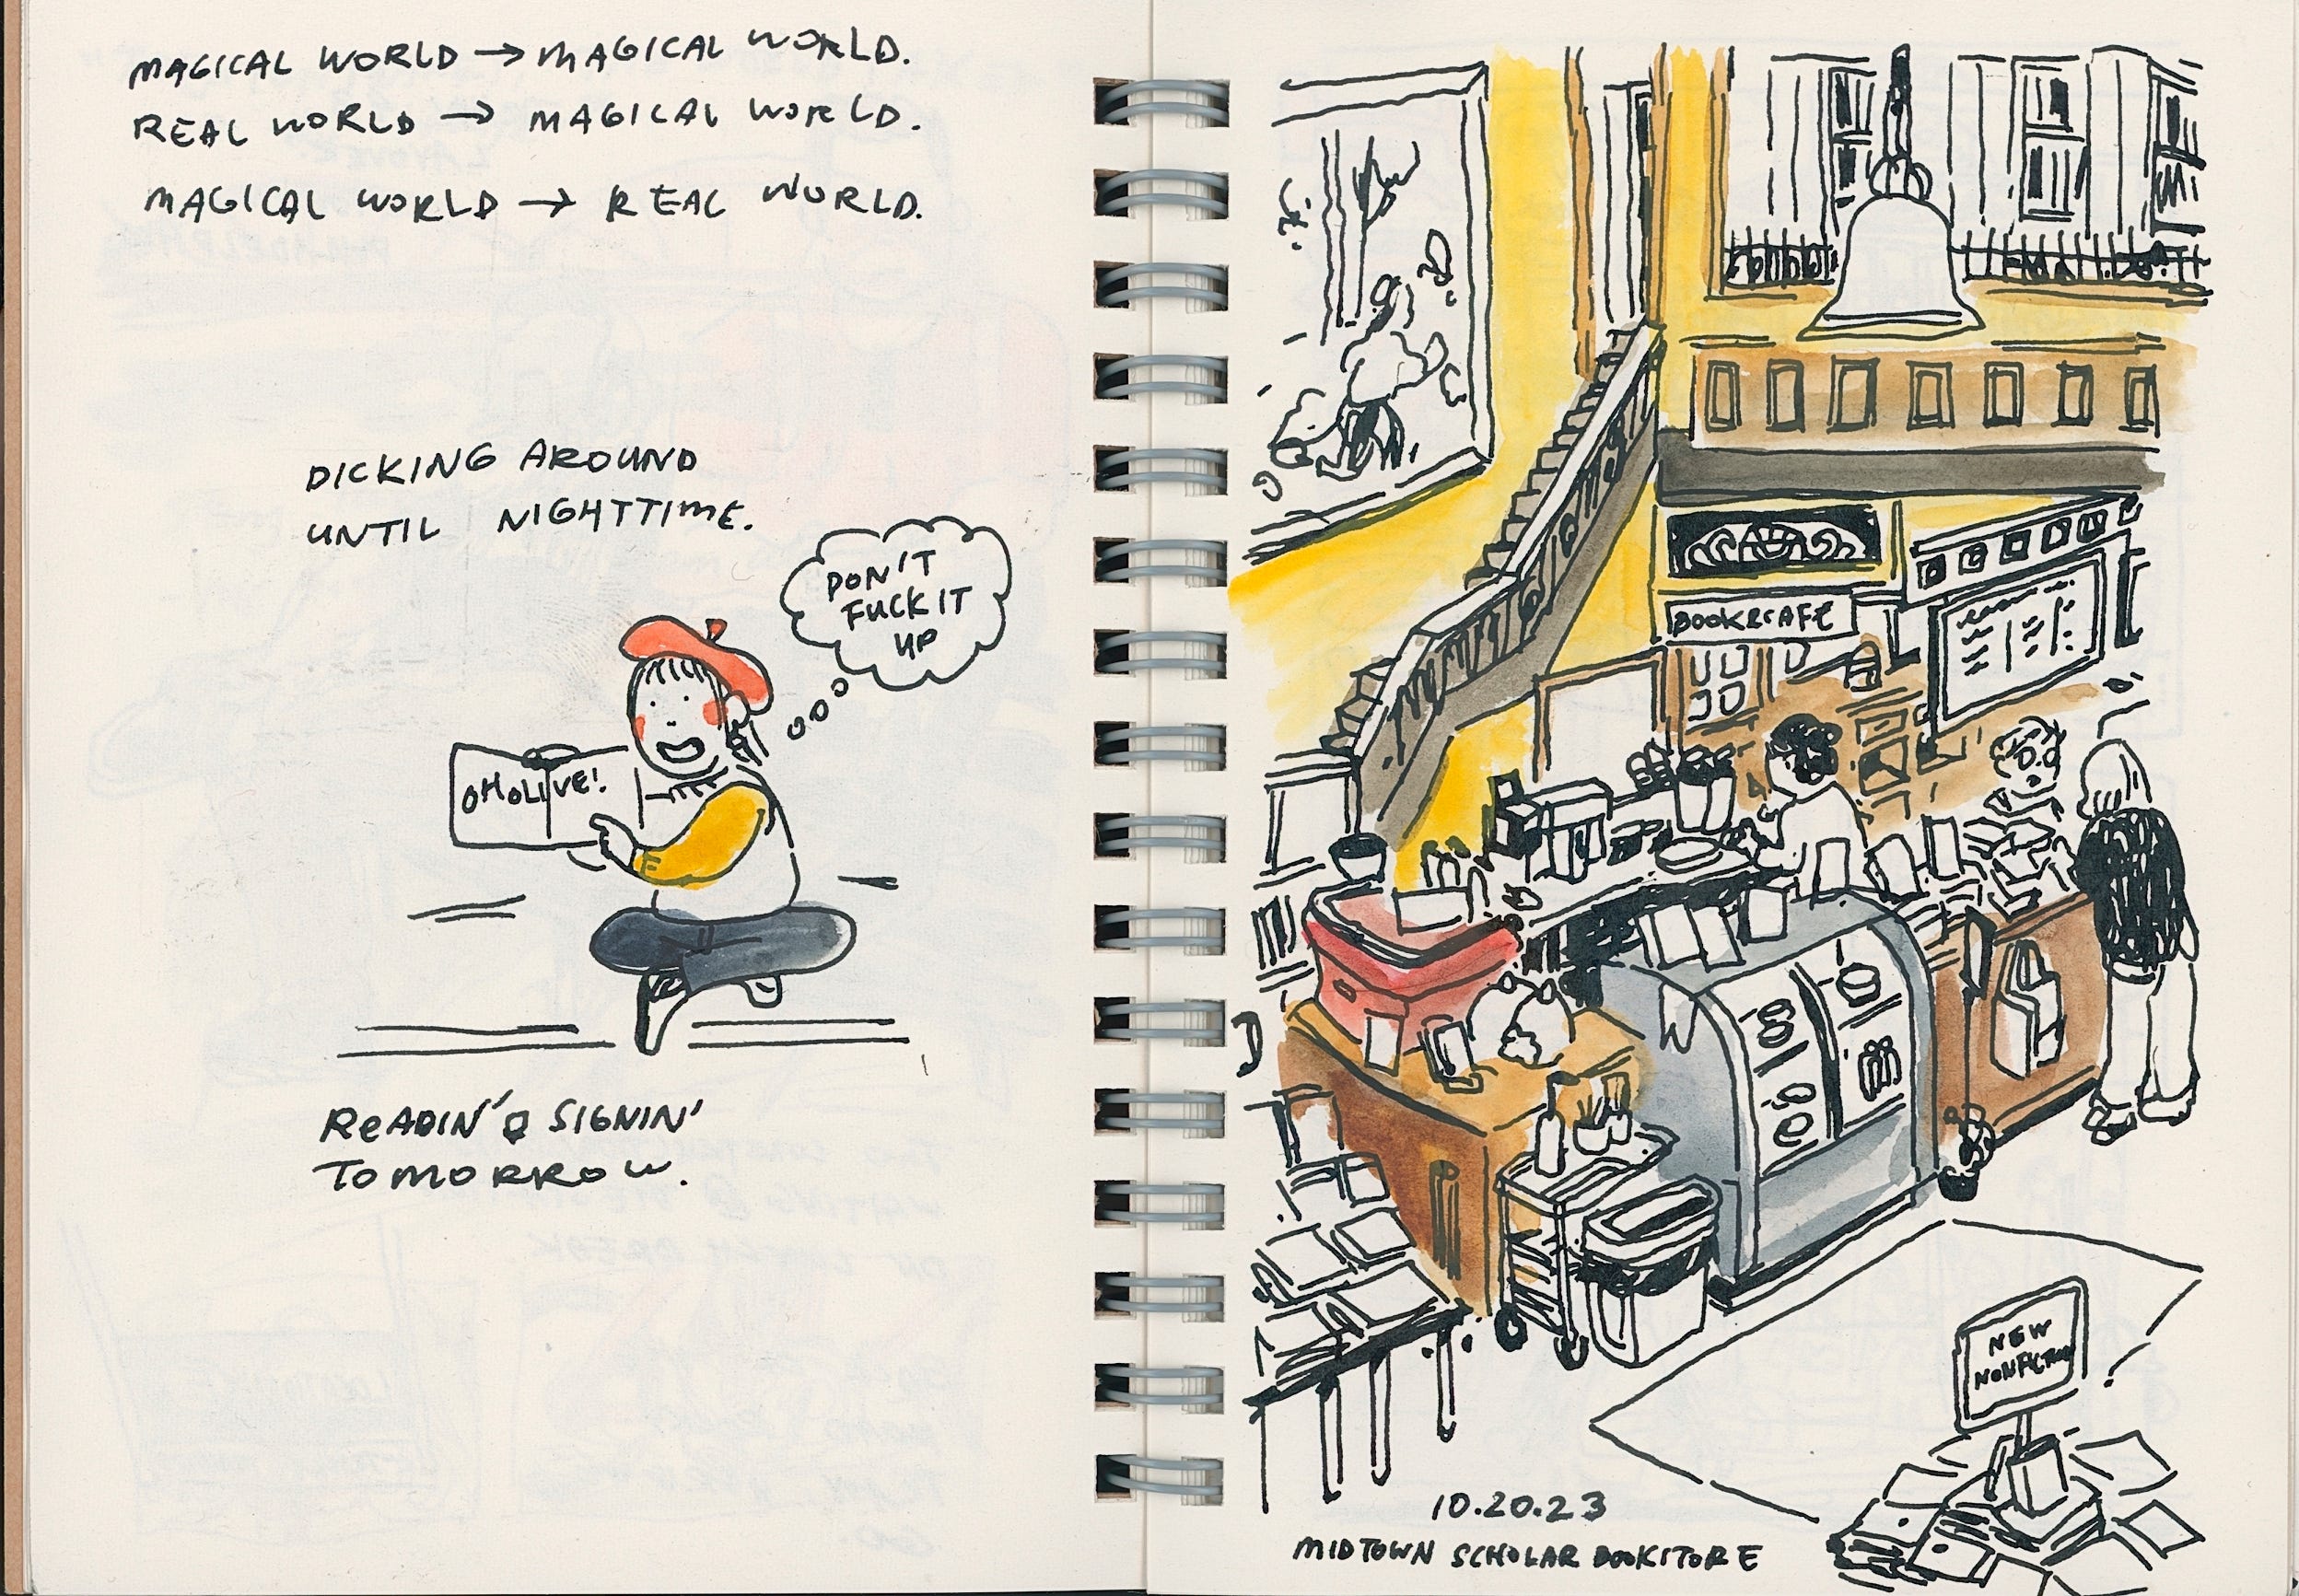 MAGICAL WORLD → MAGICAL WORLD.
REAL WORLD → MAGICAL WORLD.
MAGICAL WORLD → REAL WORLD.
DICKING AROUND
UNTIL NIGHTTIME.
DON'T
FUCK IT
UP
OH OLIVE!
READIN' & SIGNIN'
TOMORROW.
BOOK & CAFE
NEW
NONFICTION
10.20.23
MIDTOWN SCHOLAR BOOKSTORE